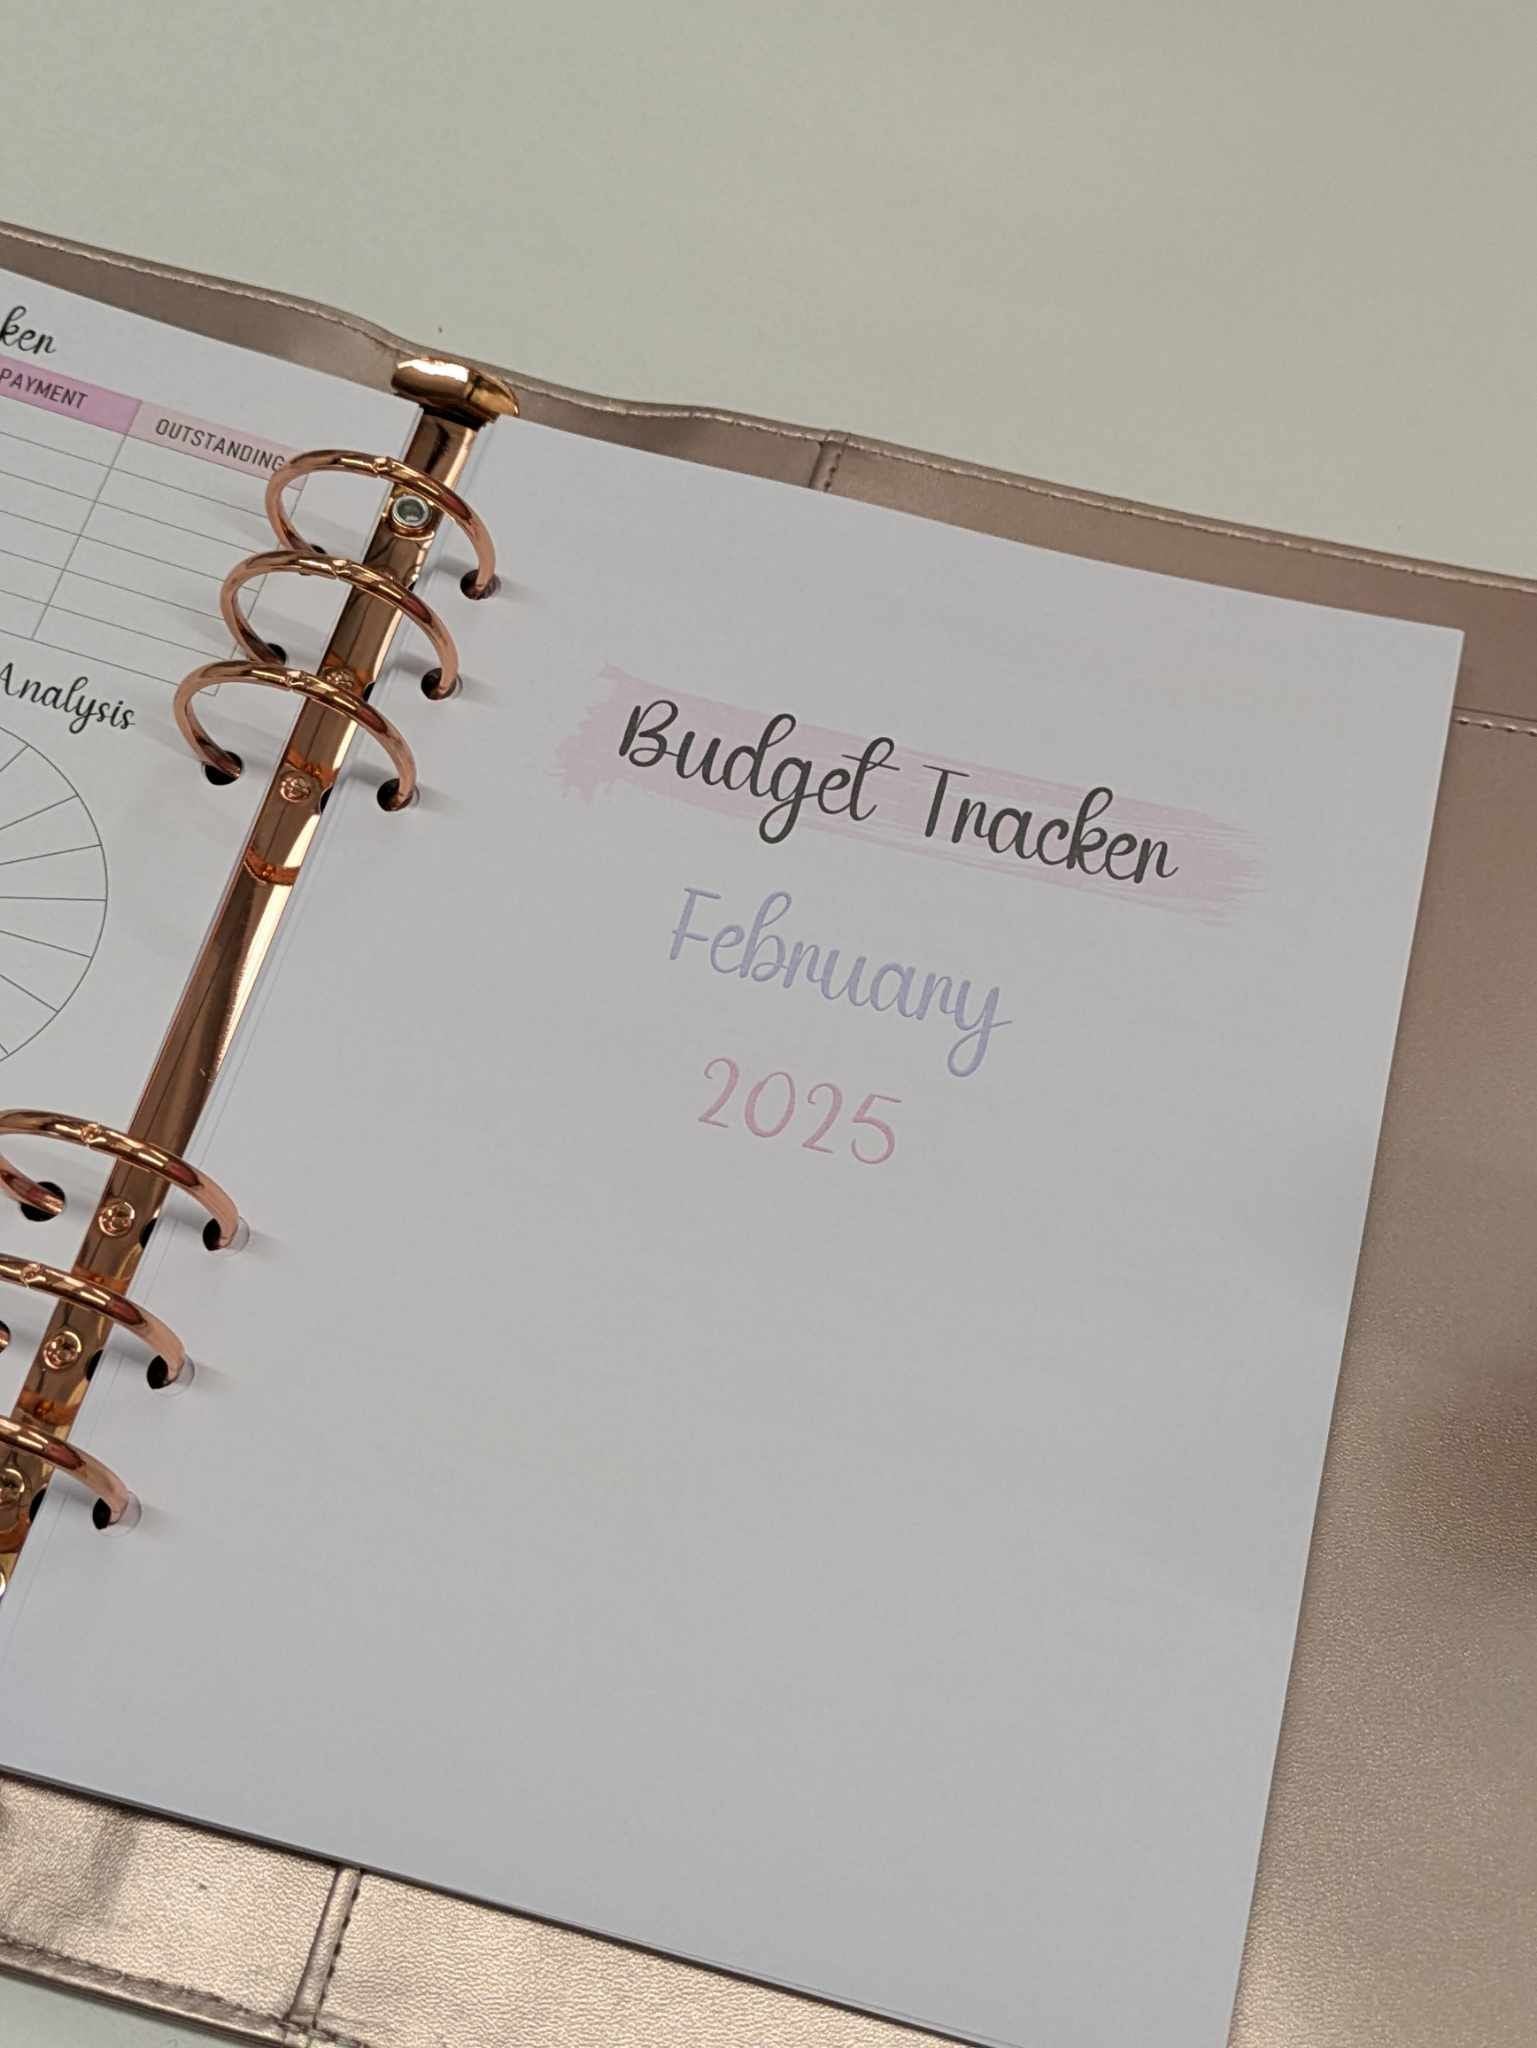 PAYMENT
OUTSTANDING
Analysis
Budget Tracker
February
2025